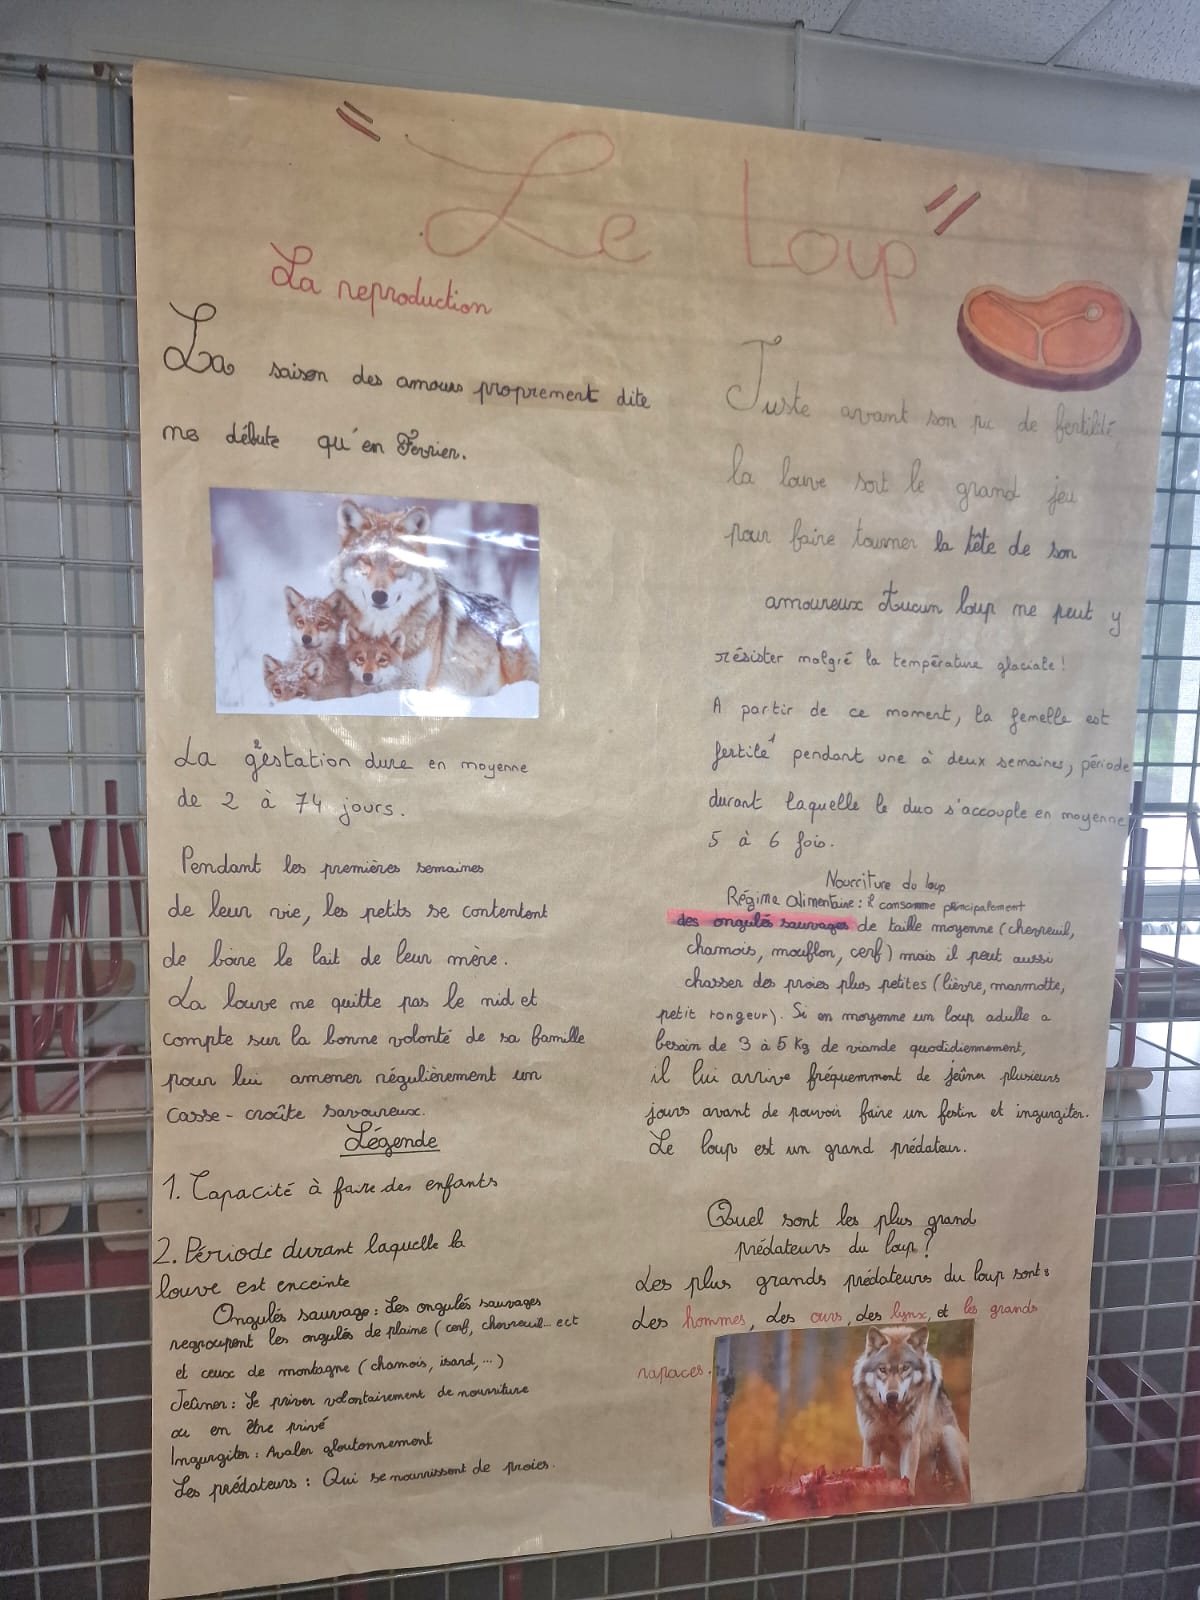 "Le Loup"
La reproduction
La saison des amours proprement dite
ne débute qu'en Fevrier.
La gestation² dure en moyenne
de 2 à 74 jours.
Pendant les premières semaines
de leur vie, les petits se contentent
de boire le lait de leur mère.
La louve ne quitte pas le nid et
compte sur la bonne volonté de sa famille
pour lui amener régulièrement un
casse-croûte savoureux.
Légende
1. Capacité à faire des enfants
2. Période durant laquelle la
louve est enceinte
Ongulés sauvage : Les ongulés sauvages
regroupent les ongulés de plaine (cerf, chevreuil... ect
et ceux de montagne (chamois, isard, ...)
Jeûner : Se priver volontairement de nourriture
ou en être privé
Ingurgiter : Avaler gloutonnement
Les prédateurs : Qui se nourrissent de proies.
Juste avant son pic de fertilité
la louve sort le grand jeu
pour faire tourner la tête de son
amoureux Aucun loup ne peut y
résister malgré la température glaciale!
A partir de ce moment, la femelle est
fertile¹ pendant une à deux semaines, période
durant laquelle le duo s'accouple en moyenne
5 à 6 fois.
Nourriture du loup
Régime alimentaire : il consomme principalement
des ongulés sauvages de taille moyenne (chevreuil,
chamois, mouflon, cerf) mais il peut aussi
chasser des proies plus petites (lièvre, marmotte,
petit rongeur). Si en moyenne un loup adulte a
besoin de 3 à 5 Kg de viande quotidiennement,
il lui arrive fréquemment de jeûner plusieurs
jours avant de pouvoir faire un festin et ingurgiter.
Le loup est un grand prédateur.
Quel sont les plus grand
prédateurs du loup ?
Les plus grands prédateurs du loup sont :
Les hommes, des ours, des lynx, et les grands
rapaces.